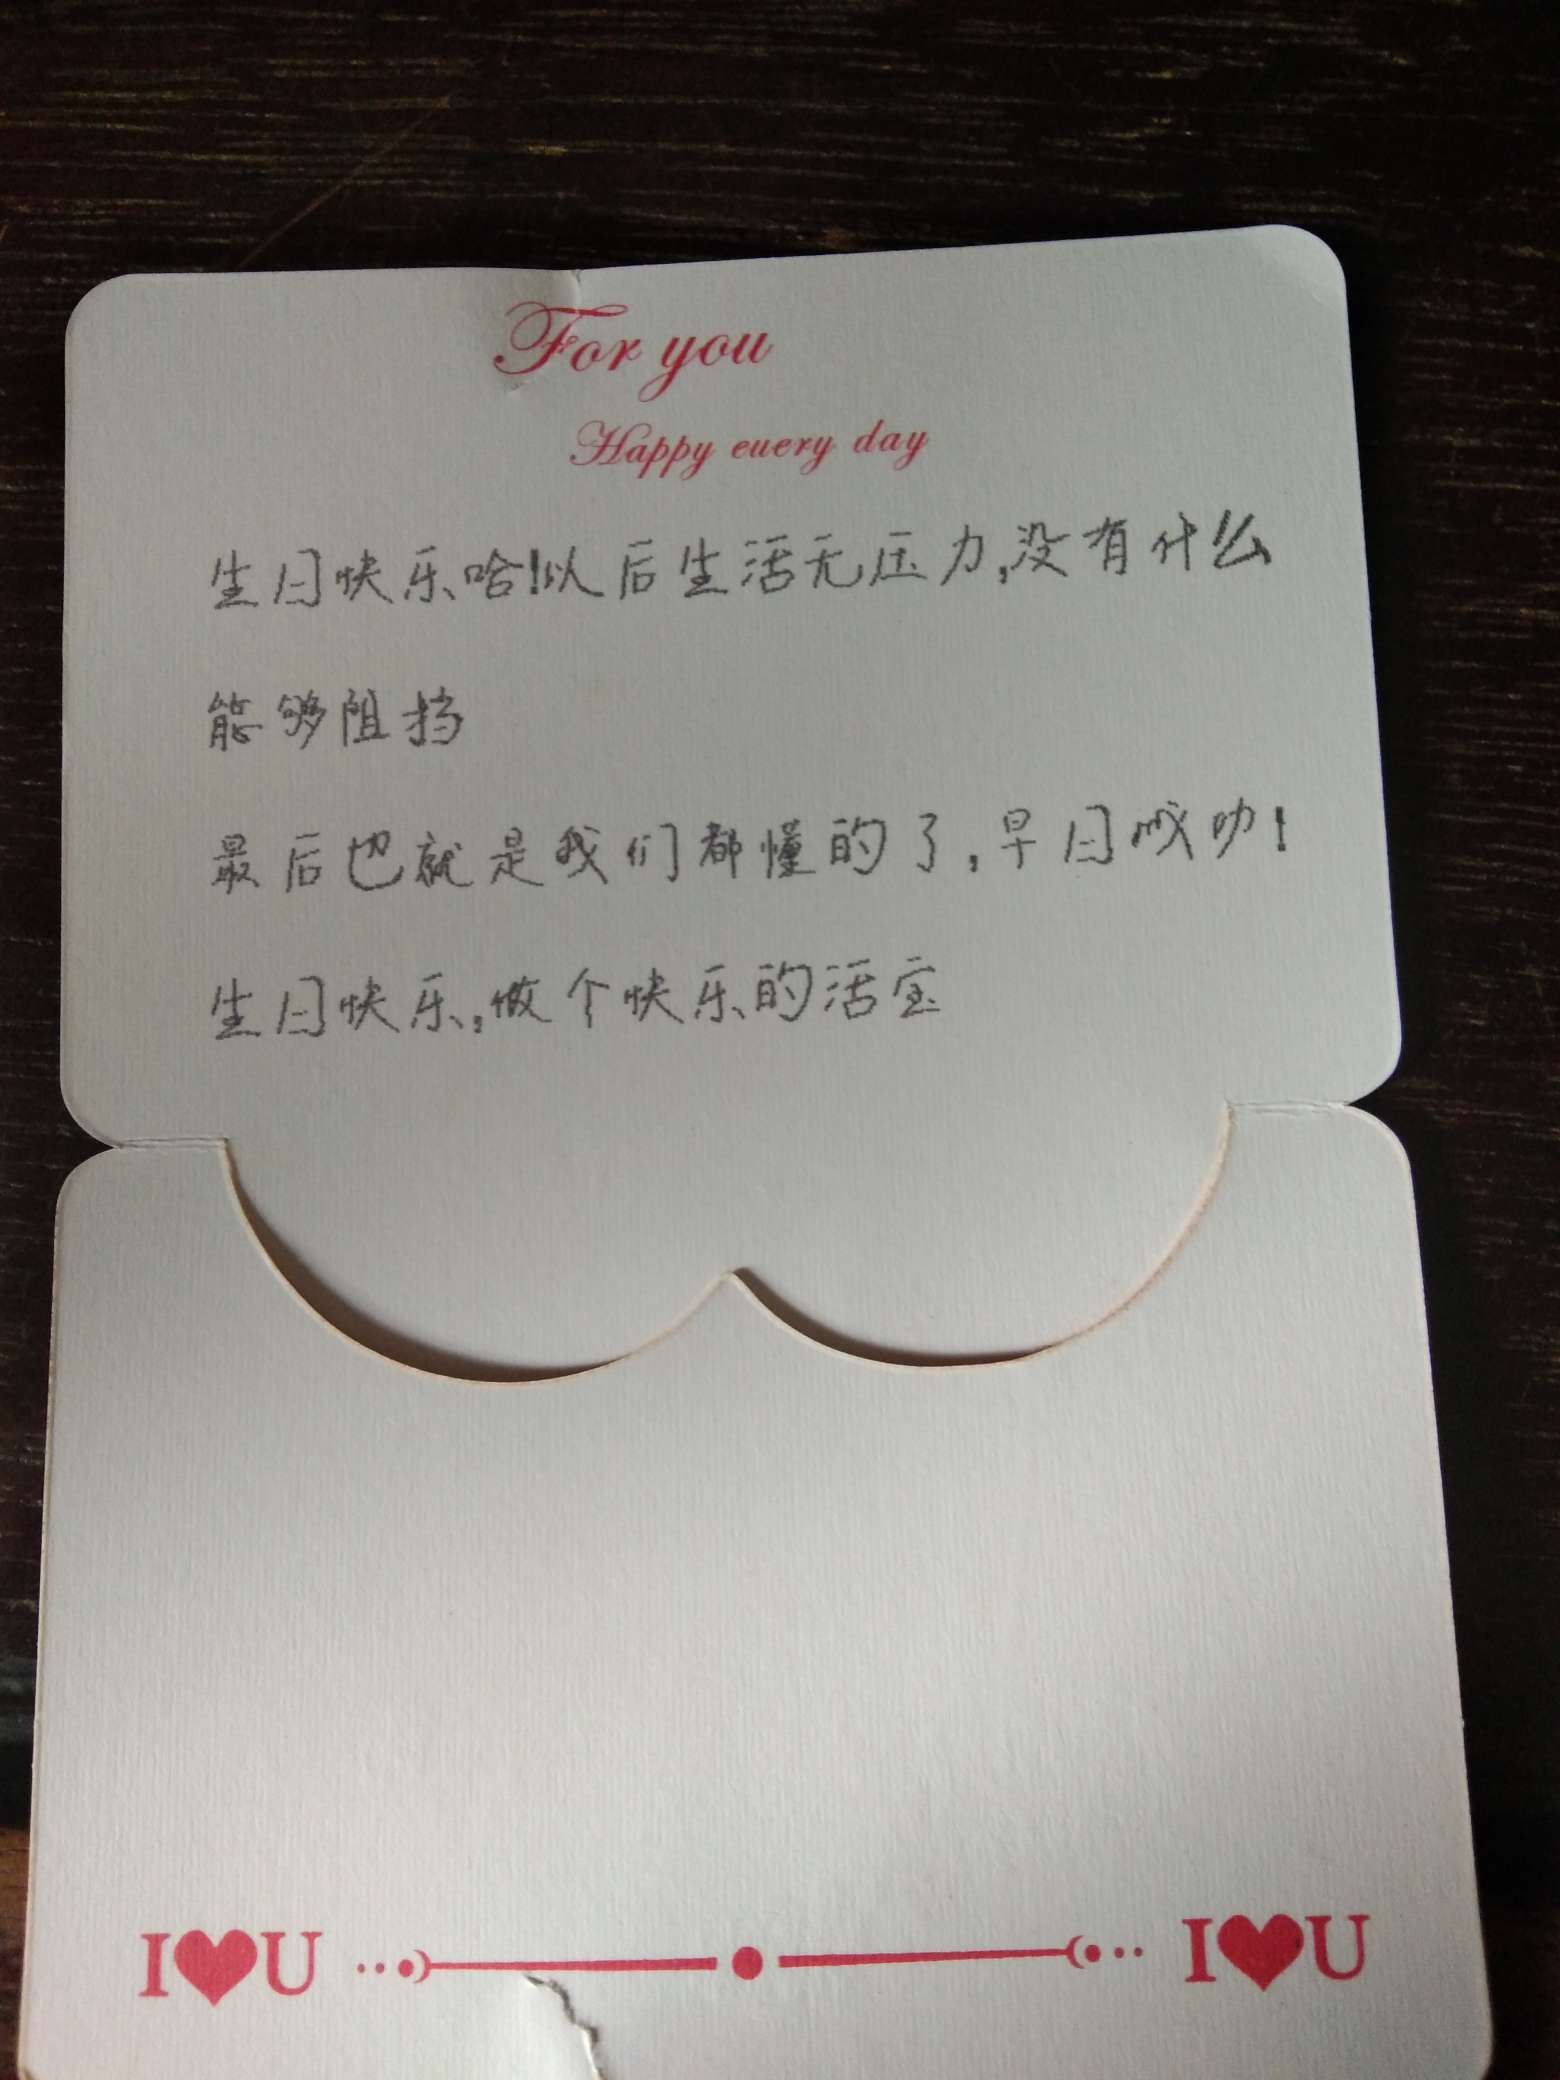 For you
Happy every day
生日快乐哈!以后生活无压力,没有什么
能够阻挡
最后也就是我们都懂的了,早日成功!
生日快乐,做个快乐的活宝
I❤U I❤U